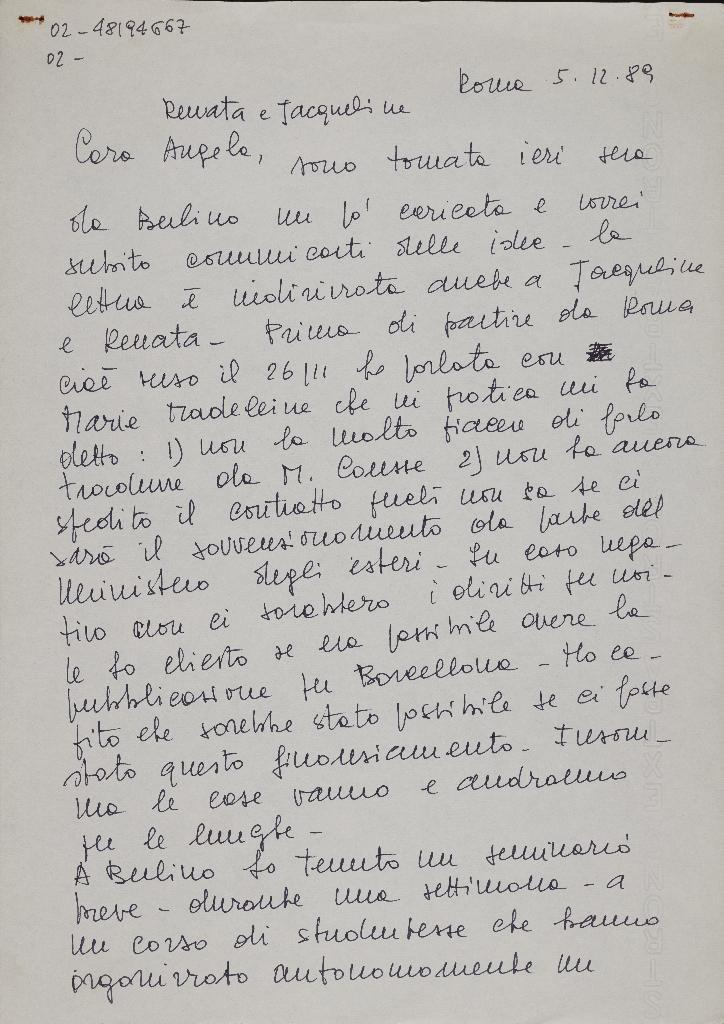 02-48194667
02-
Roma 5.12.89
Renata e Jacqueline
Cara Angela, sono tornata ieri sera
da Berlino un po' caricata e vorrei
subito communicarti delle idee - la
lettera è indirizzata anche a Jacqueline
e Renata - Prima di partire da Roma
cioè verso il 26/11 ho parlato con
Marie Madeleine che in pratica mi ha
detto: 1) non ha molto piacere di farlo
tradurre da M. Causse 2) non ha ancora
spedito il contratto perché non sa se ci
sarà il sovvenzionamento da parte del
Ministero degli esteri - In caso nega-
tivo non ci sarebbero i diritti per noi -
le ho chiesto se era possibile avere la
pubblicazione per Barcellona - Ho ca-
pito che sarebbe stato possibile se ci fosse
stato questo finanziamento - Insom-
ma le cose vanno e andranno
per le lunghe -
A Berlino ho tenuto un seminario
breve - durante una settimana - a
un corso di studentesse che hanno
organizzato autonomamente un